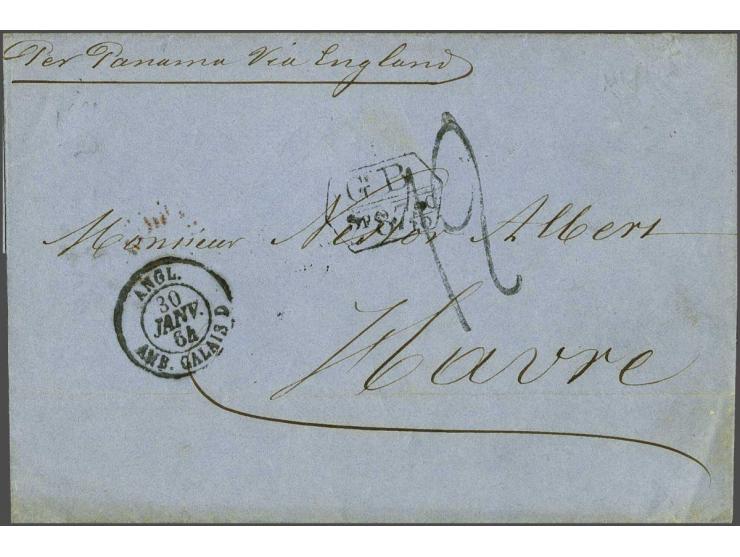 Per Panama Via England
GB
12
Monsieur Nestor Albert
ANGL.
30
JANV.
64
AMB. CALAIS D
Havre